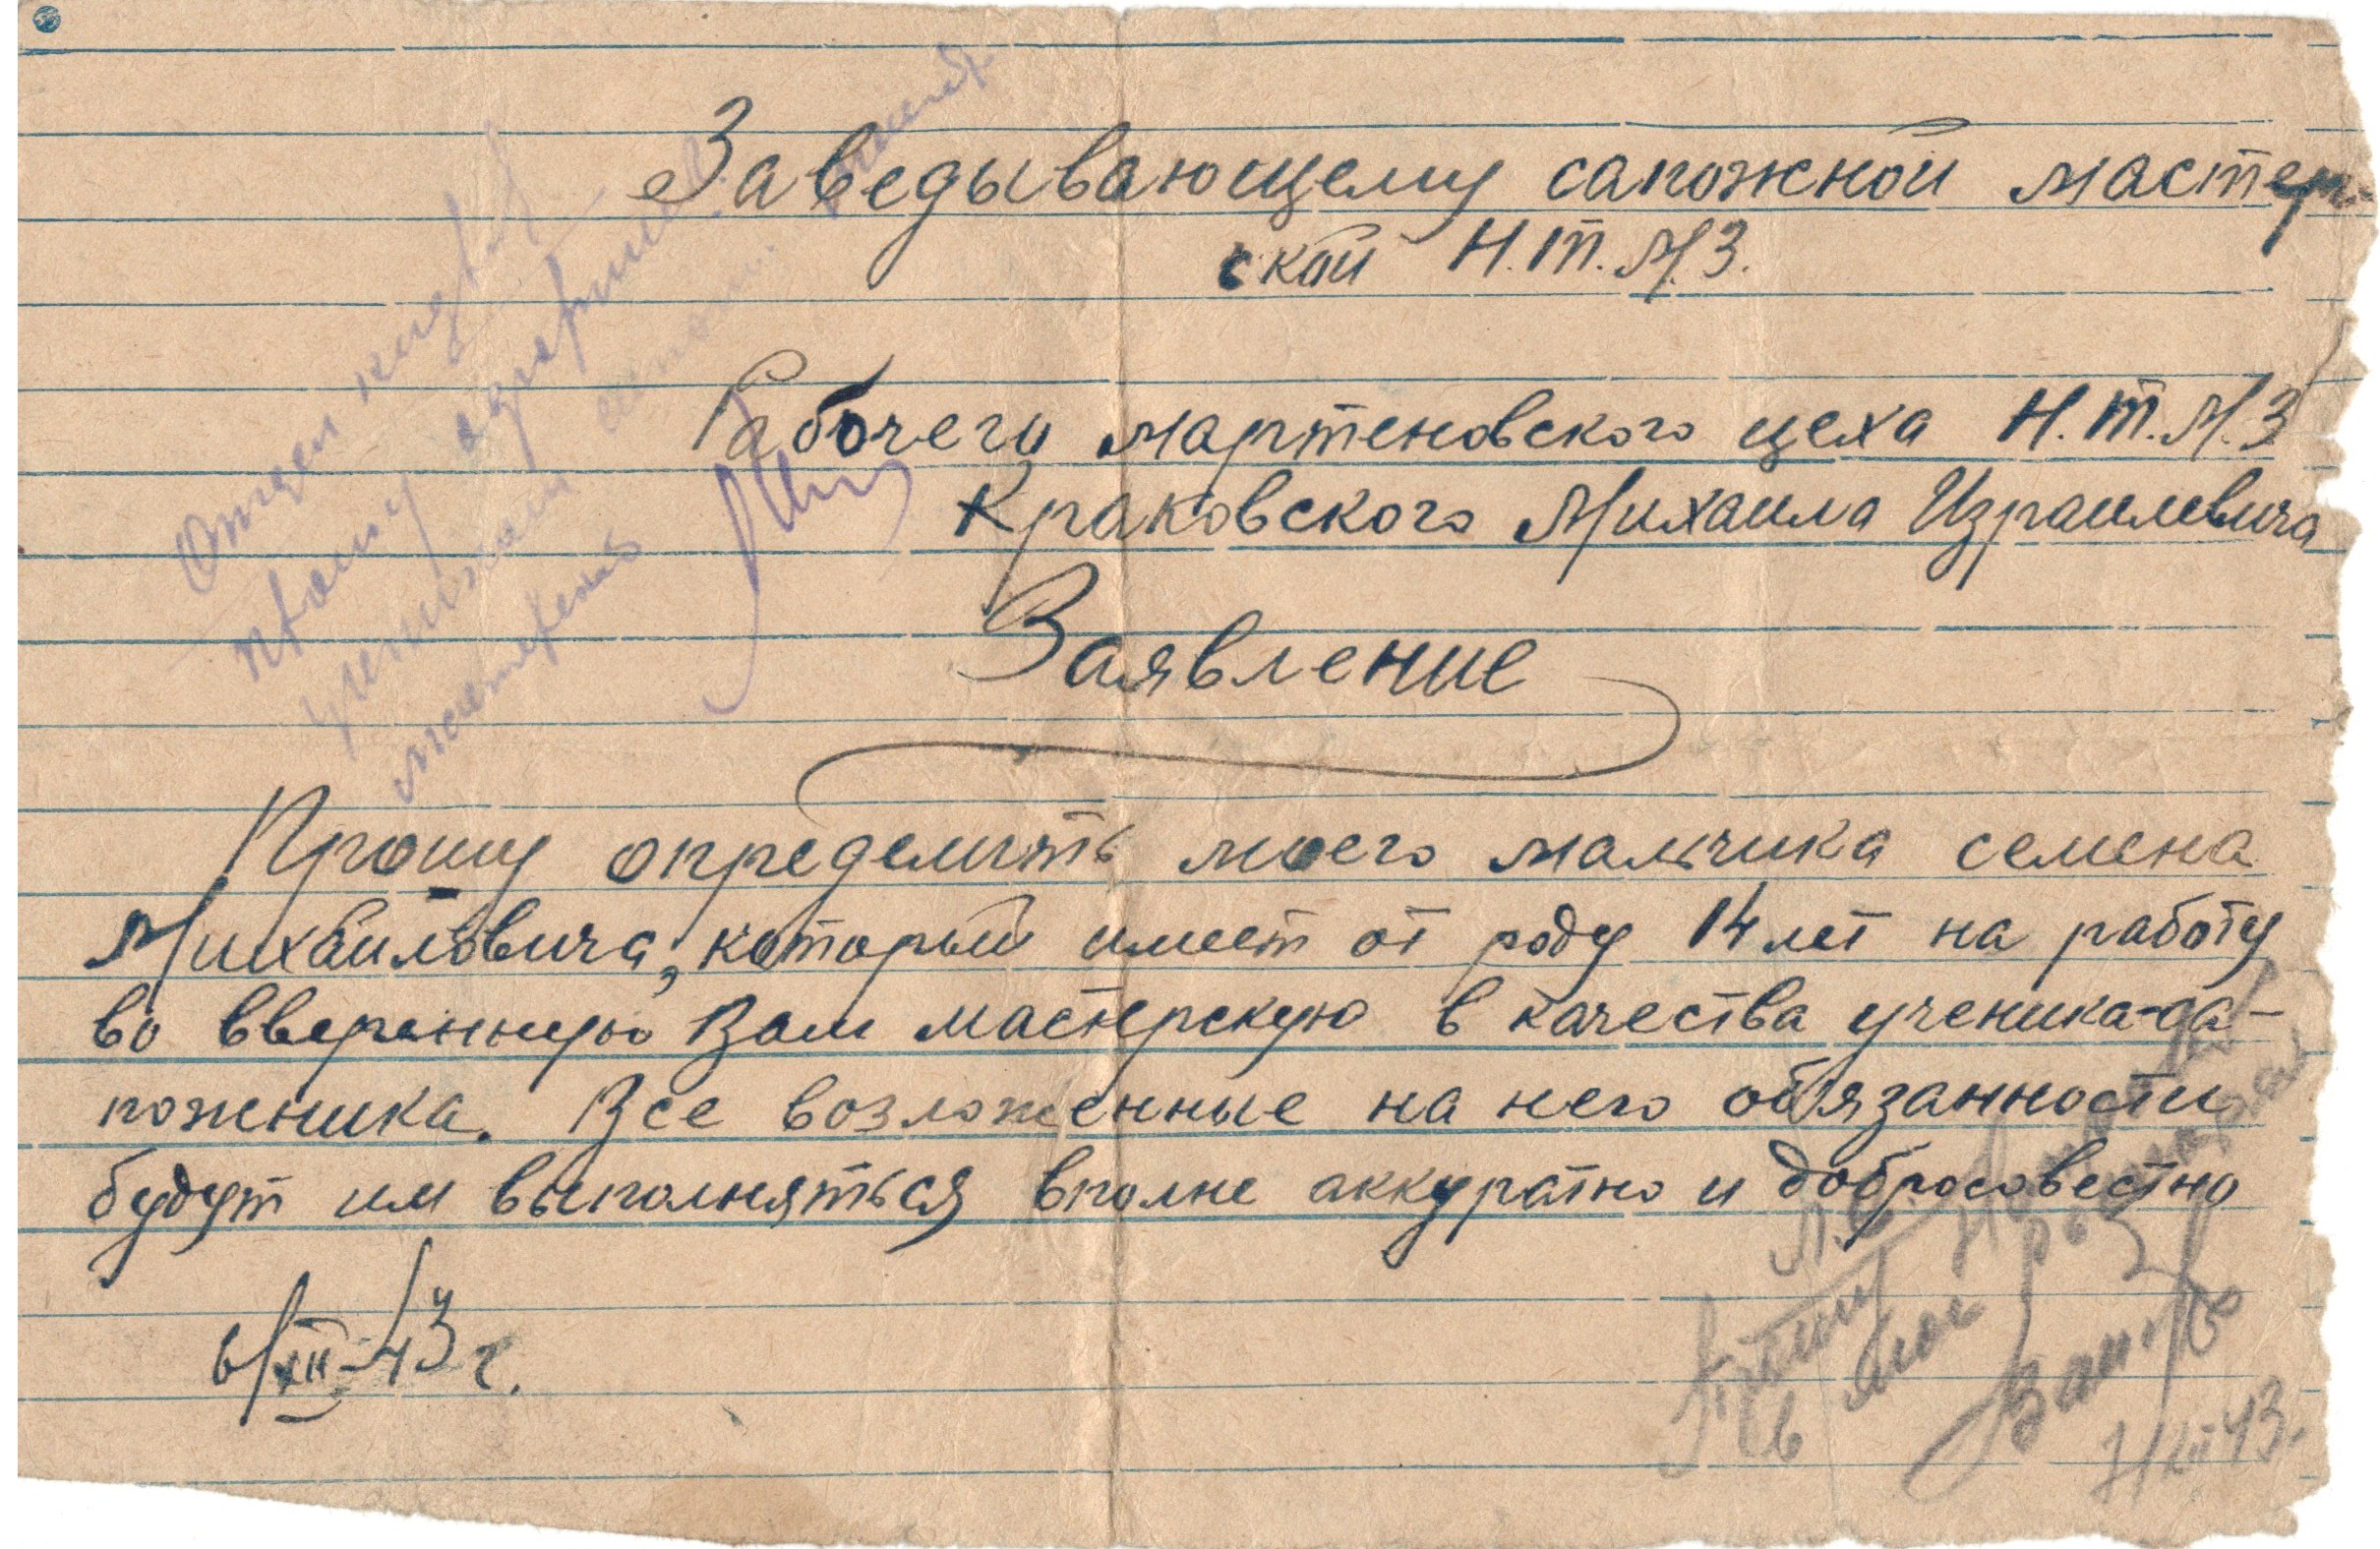 Заведывающему сапожной мастер-
ской Н.Т.М.З.
Рабочего мартеновского цеха Н.Т.М.З
Краковского Михаила Израилевича
Заявление
Прошу определить моего мальчика семена
Михайловича, который имеет от роду 14 лет на работу
во вверенную Вам мастерскую в качества ученика-са-
пожника. Все возложенные на него обязанности
будут им выполняться вполне аккуратно и добросовестно
6/XII-43 г.
Отдел
учеником
мастерскую
в
7/XII 43.